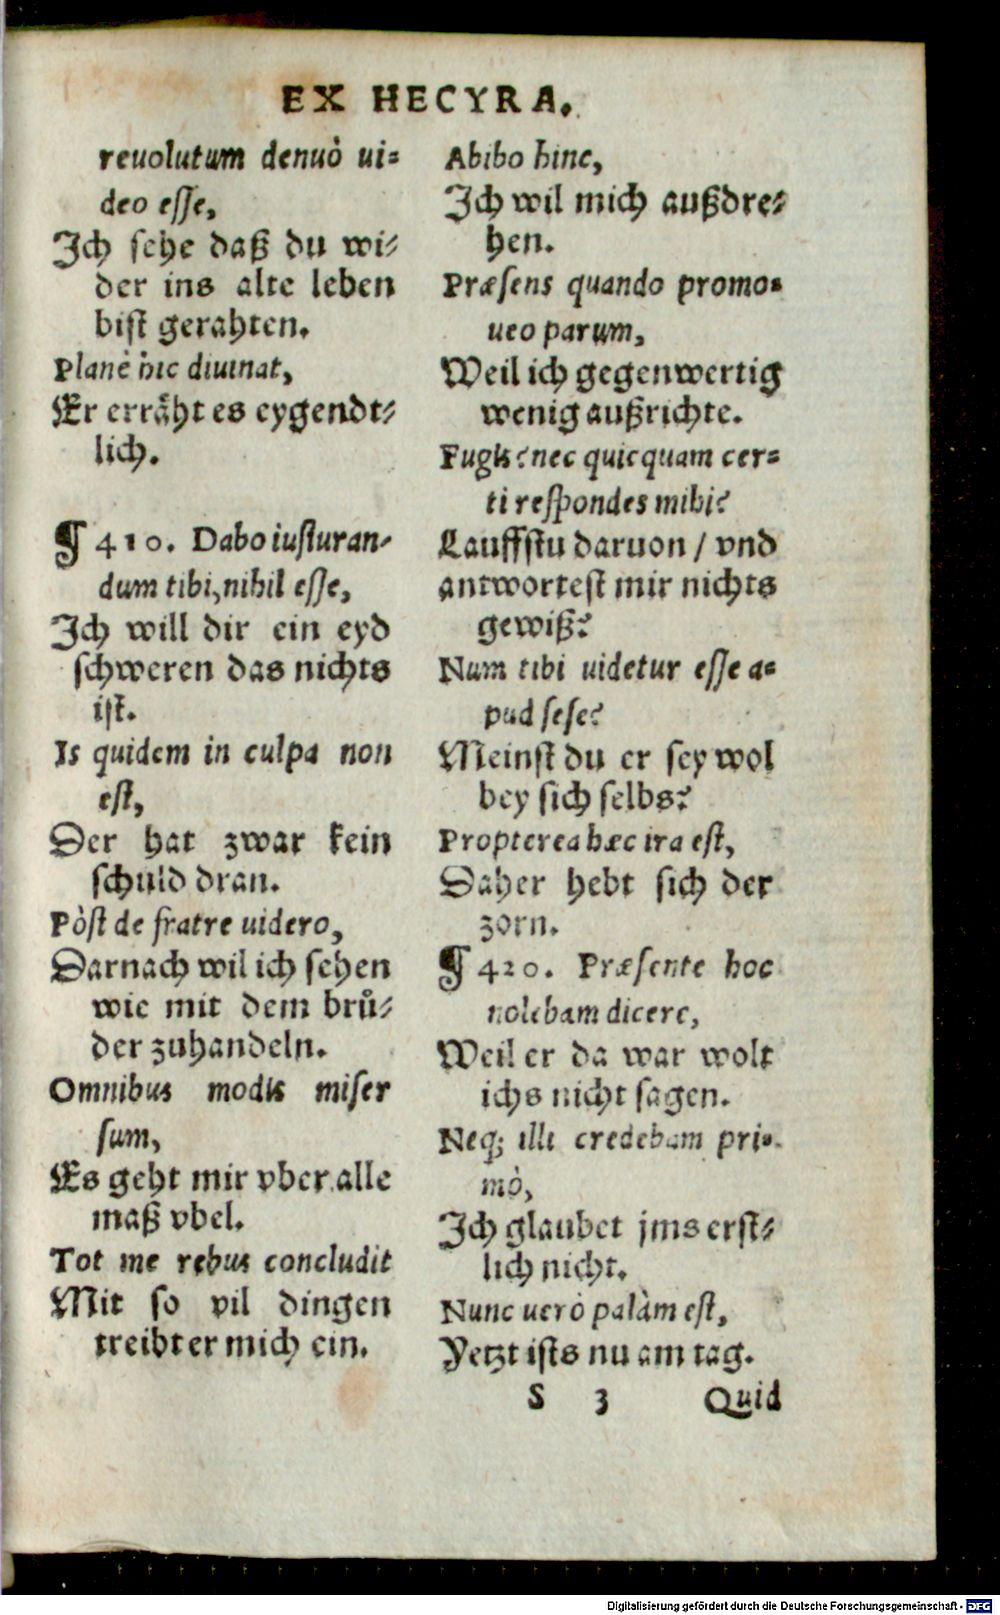 EX HECYRA.
reuolutum denuò ui=
deo esse,
Ich sehe daß du wi=
der ins alte leben
bist gerahten.
Planè hic diuinat,
Er erräht es eygendt=
lich.
¶ 410. Dabo iusiuran-
dum tibi, nihil esse,
Ich will dir ein eyd
schweren das nichts
ist.
Is quidem in culpa non
est,
Der hat zwar kein
schuld dran.
Pòst de fratre uidero,
Darnach wil ich sehen
wie mit dem brů=
der zuhandeln.
Omnibus modis miser
sum,
Es geht mir vber alle
maß vbel.
Tot me rebus concludit
Mit so vil dingen
treibt er mich ein.
Abibo hinc,
Ich wil mich außdre=
hen.
Præsens quando promo=
ueo parum,
Weil ich gegenwertig
wenig außrichte.
Fugis? nec quicquam cer=
ti respondes mihi?
Lauffstu daruon / vnd
antwortest mir nichts
gewiß?
Num tibi uidetur esse a=
pud sese?
Meinst du er sey wol
bey sich selbs?
Propterea hæc ira est,
Daher hebt sich der
zorn.
¶ 420. Præsente hoc
nolebam dicere,
Weil er da war wolt
ichs nicht sagen.
Neq; illi credebam pri=
mò,
Ich glaubet jms erst=
lich nicht.
Nunc uerò palàm est,
Yetzt ists nu am tag.
S 3 Quid
Digitalisierung gefördert durch die Deutsche Forschungsgemeinschaft - DFG